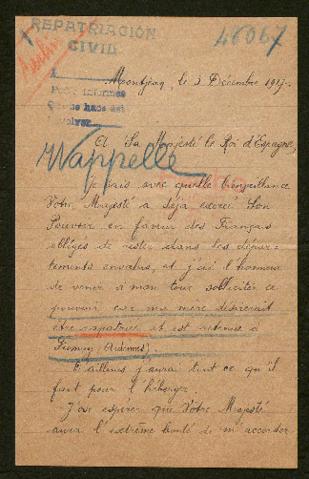 REPATRIACIÓN
CIVIL
46067
Montjean, le 3 Décembre 1917.
A Sa Majesté le Roi d'Espagne,
Wappelle
Je sais avec quelle bienveillance
Votre Majesté a déjà exercé Son
Pouvoir en faveur des Français
obligés de rester dans les dépar-
tements envahis, et j'ai l'honneur
de venir à mon tour solliciter ce
pouvoir car ma mère désirerait
être rapatriée et est retenue à
Fismoy (Ardennes).
D'ailleurs j'aurai tout ce qu'il
faut pour l'héberger.
J'ose espérer que Votre Majesté
aura l'extrême bonté de m'accorder